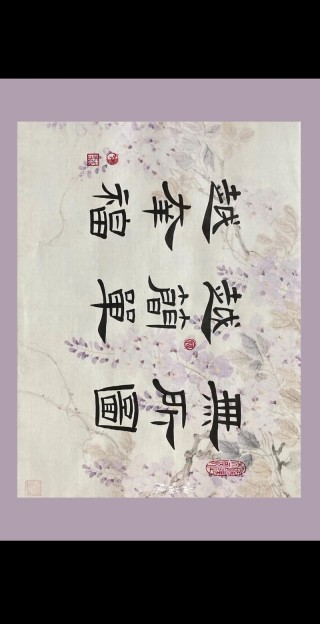 無所圖
越簡單
越幸福